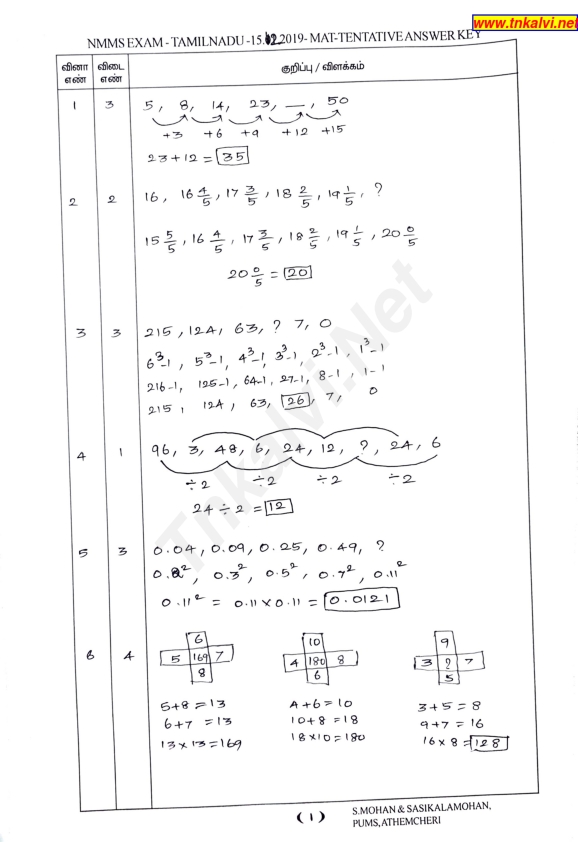 www.tnkalvi.net
NMMS EXAM - TAMILNADU -15.12.2019- MAT-TENTATIVE ANSWER KEY
வினா எண் விடை எண் குறிப்பு / விளக்கம்
1 3 5, 8, 14, 23, —, 50
+3 +6 +9 +12 +15
23+12 = 35
2 2 16, 16 4/5, 17 3/5, 18 2/5, 19 1/5, ?
15 5/5, 16 4/5, 17 3/5, 18 2/5, 19 1/5, 20 0/5
20 0/5 = 20
3 3 215, 124, 63, ? 7, 0
6³-1, 5³-1, 4³-1, 3³-1, 2³-1, 1³-1
216-1, 125-1, 64-1, 27-1, 8-1, 1-1
215, 124, 63, 26, 7, 0
4 1 96, 3, 48, 6, 24, 12, ?, 24, 6
÷2 ÷2 ÷2 ÷2
24 ÷ 2 = 12
5 3 0.04, 0.09, 0.25, 0.49, ?
0.2², 0.3², 0.5², 0.7², 0.11²
0.11² = 0.11 x 0.11 = 0.0121
6 4 6 10 9
5 169 7 4 180 8 3 ? 7
8 6 5
5+8=13 4+6=10 3+5=8
6+7=13 10+8=18 9+7=16
13x13=169 18x10=180 16x8=128
Tnkalvi.Net
(1)
S.MOHAN & SASIKALAMOHAN,
PUMS, ATHEMCHERI